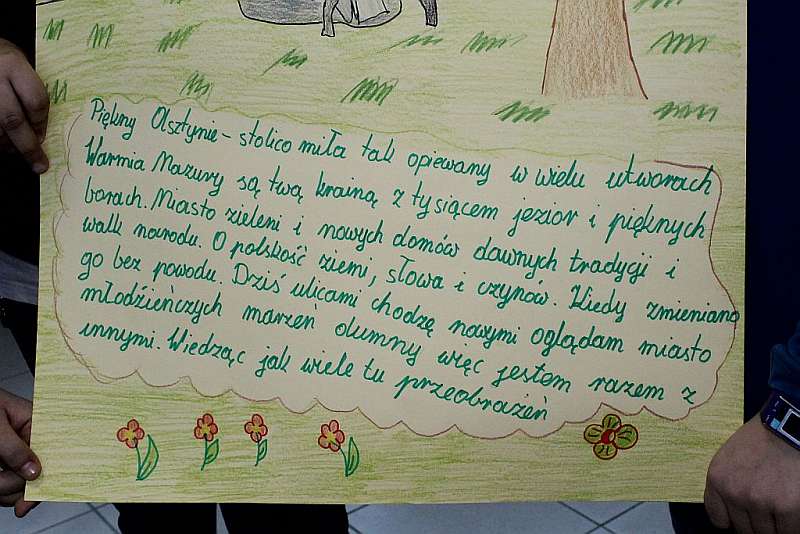 Piękny Olsztynie – stolico miła tak opiewany w wielu utworach
Warmia Mazury są twą krainą z tysiącem jezior i pięknych
borach. Miasto zieleni i nowych domów dawnych tradycji i
walk narodu. O polskość ziemi, słowa i czynów. Kiedy zmieniano
go bez powodu. Dziś ulicami chodzę nowymi oglądam miasto
młodzieńczych marzeń dumny więc jestem razem z
innymi. Wiedząc jak wiele tu przeobrażeń